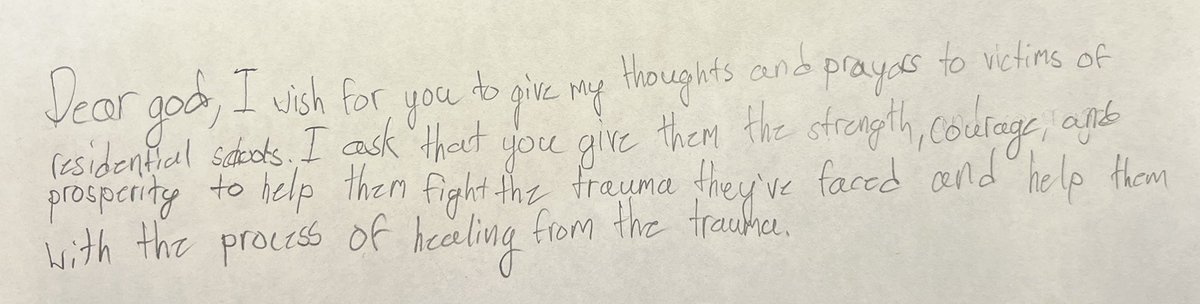 Dear god, I wish for you to give my thoughts and prayars to victims of
residential schools. I ask that you give them the strength, courage, and
prosperity to help them fight the trauma they've faced and help them
with the process of healing from the trauma.